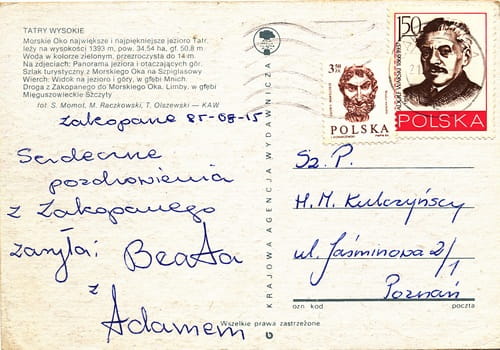 TATRY WYSOKIE
Morskie Oko największe i najpiękniejsze jezioro Tatr,
leży na wysokości 1393 m, pow. 34,54 ha, gł. 50,8 m
Woda w kolorze zielonym, przezroczysta do 14 m.
Na zdjęciach: Panoram jeziora i otaczających gór.
Szlak turystyczny z Morskiego Oka na Szpiglasową
Wierch: Widok na jezioro i góry, w głębi Mnich
Droga z Zakopanego do Morskiego Oka. Limby. w głębi
Mięguszowieckie Szczyty
fot: S. Momot, M. Raczkowski, T. Olszewski — KAW
Zakopane 85-08-15
Serdeczne
pozdrowienia
z Zakopanego
zasyła:
Beata
z
Adamem
Wszelkie prawa zastrzeżone
KRAJOWA AGENCJA WYDAWNICZA
3,50 ZŁ
POLSKA
1,50
POLSKA
Sz. P.
H. M. Kulczyńscy
ul. Jaśminowa 2/1
Poznań
ozn. kod
poczta